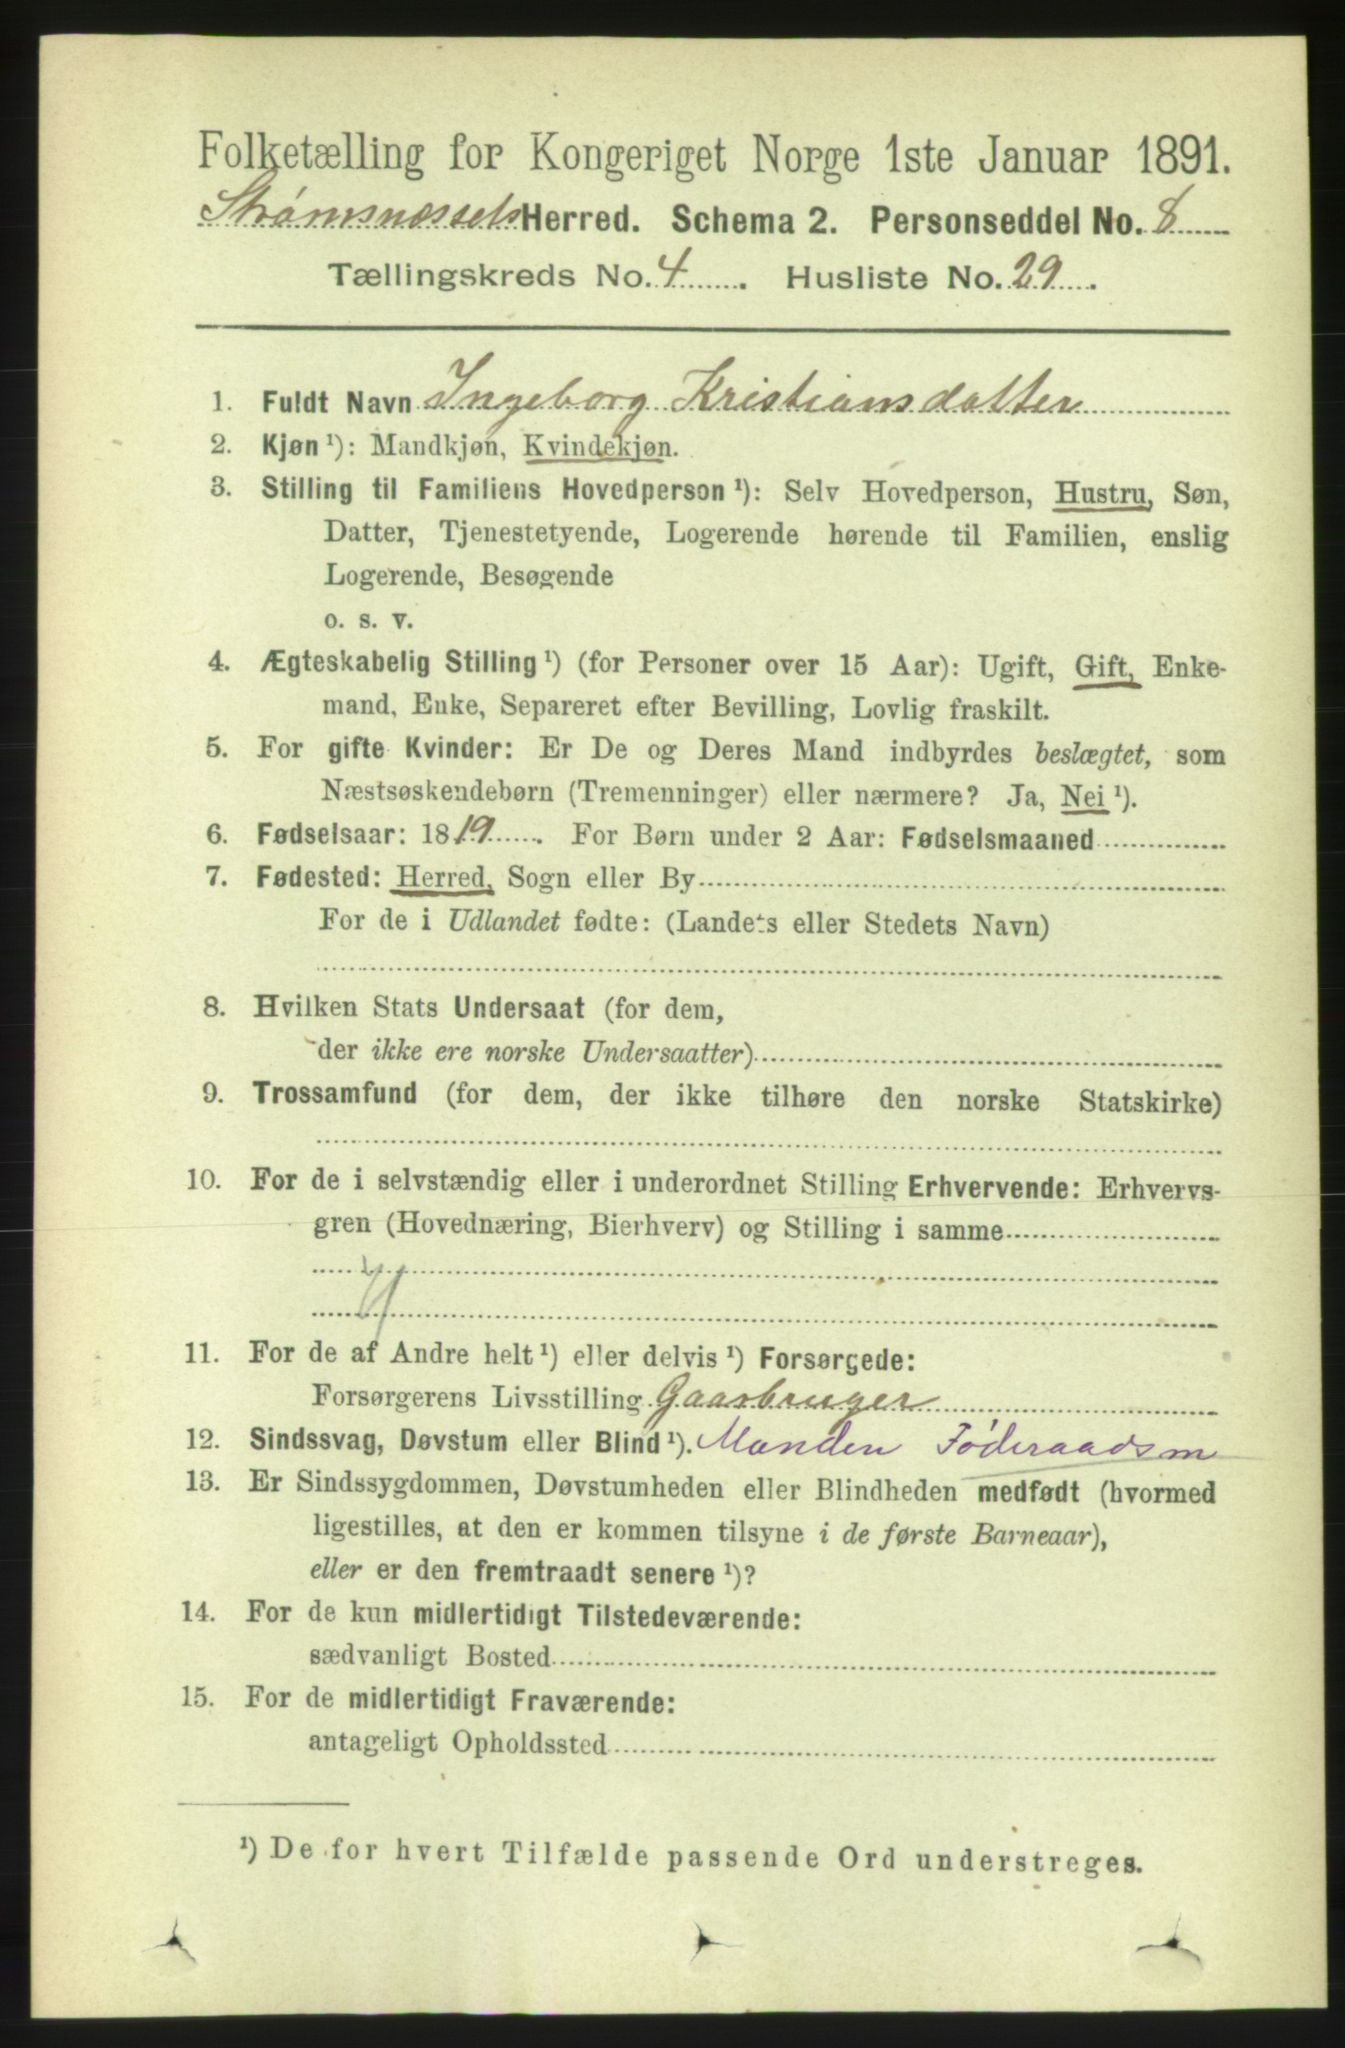 Folketælling for Kongeriget Norge 1ste Januar 1891.
Strømsnæssets Herred. Schema 2. Personseddel No. 8
Tællingskreds No. 4. Husliste No. 29.
1. Fuldt Navn Ingeborg Kristiansdatter
2. Kjøn ¹): Mandkjøn, Kvindekjøn.
3. Stilling til Familiens Hovedperson ¹): Selv Hovedperson, Hustru, Søn,
Datter, Tjenestetyende, Logerende hørende til Familien, enslig
Logerende, Besøgende
o. s. v.
4. Ægteskabelig Stilling ¹) (for Personer over 15 Aar): Ugift, Gift, Enke-
mand, Enke, Separeret efter Bevilling, Lovlig fraskilt.
5. For gifte Kvinder: Er De og Deres Mand indbyrdes beslægtet, som
Næstsøskendebørn (Tremenninger) eller nærmere? Ja, Nei ¹).
6. Fødselsaar: 1819. For Børn under 2 Aar: Fødselsmaaned
7. Fødested: Herred, Sogn eller By
For de i Udlandet fødte: (Landets eller Stedets Navn)
8. Hvilken Stats Undersaat (for dem,
der ikke ere norske Undersaatter)
9. Trossamfund (for dem, der ikke tilhøre den norske Statskirke)
10. For de i selvstændig eller i underordnet Stilling Erhvervende: Erhvervs-
gren (Hovednæring, Bierhverv) og Stilling i samme
11. For de af Andre helt ¹) eller delvis ¹) Forsørgede:
Forsørgerens Livsstilling Gaarbruger
12. Sindssvag, Døvstum eller Blind ¹). Manden Föderaadsm
13. Er Sindssygdommen, Døvstumheden eller Blindheden medfødt (hvormed
ligestilles, at den er kommen tilsyne i de første Barneaar),
eller er den fremtraadt senere ¹)?
14. For de kun midlertidigt Tilstedeværende:
sædvanligt Bosted
15. For de midlertidigt Fraværende:
antageligt Opholdssted
¹) De for hvert Tilfælde passende Ord understreges.